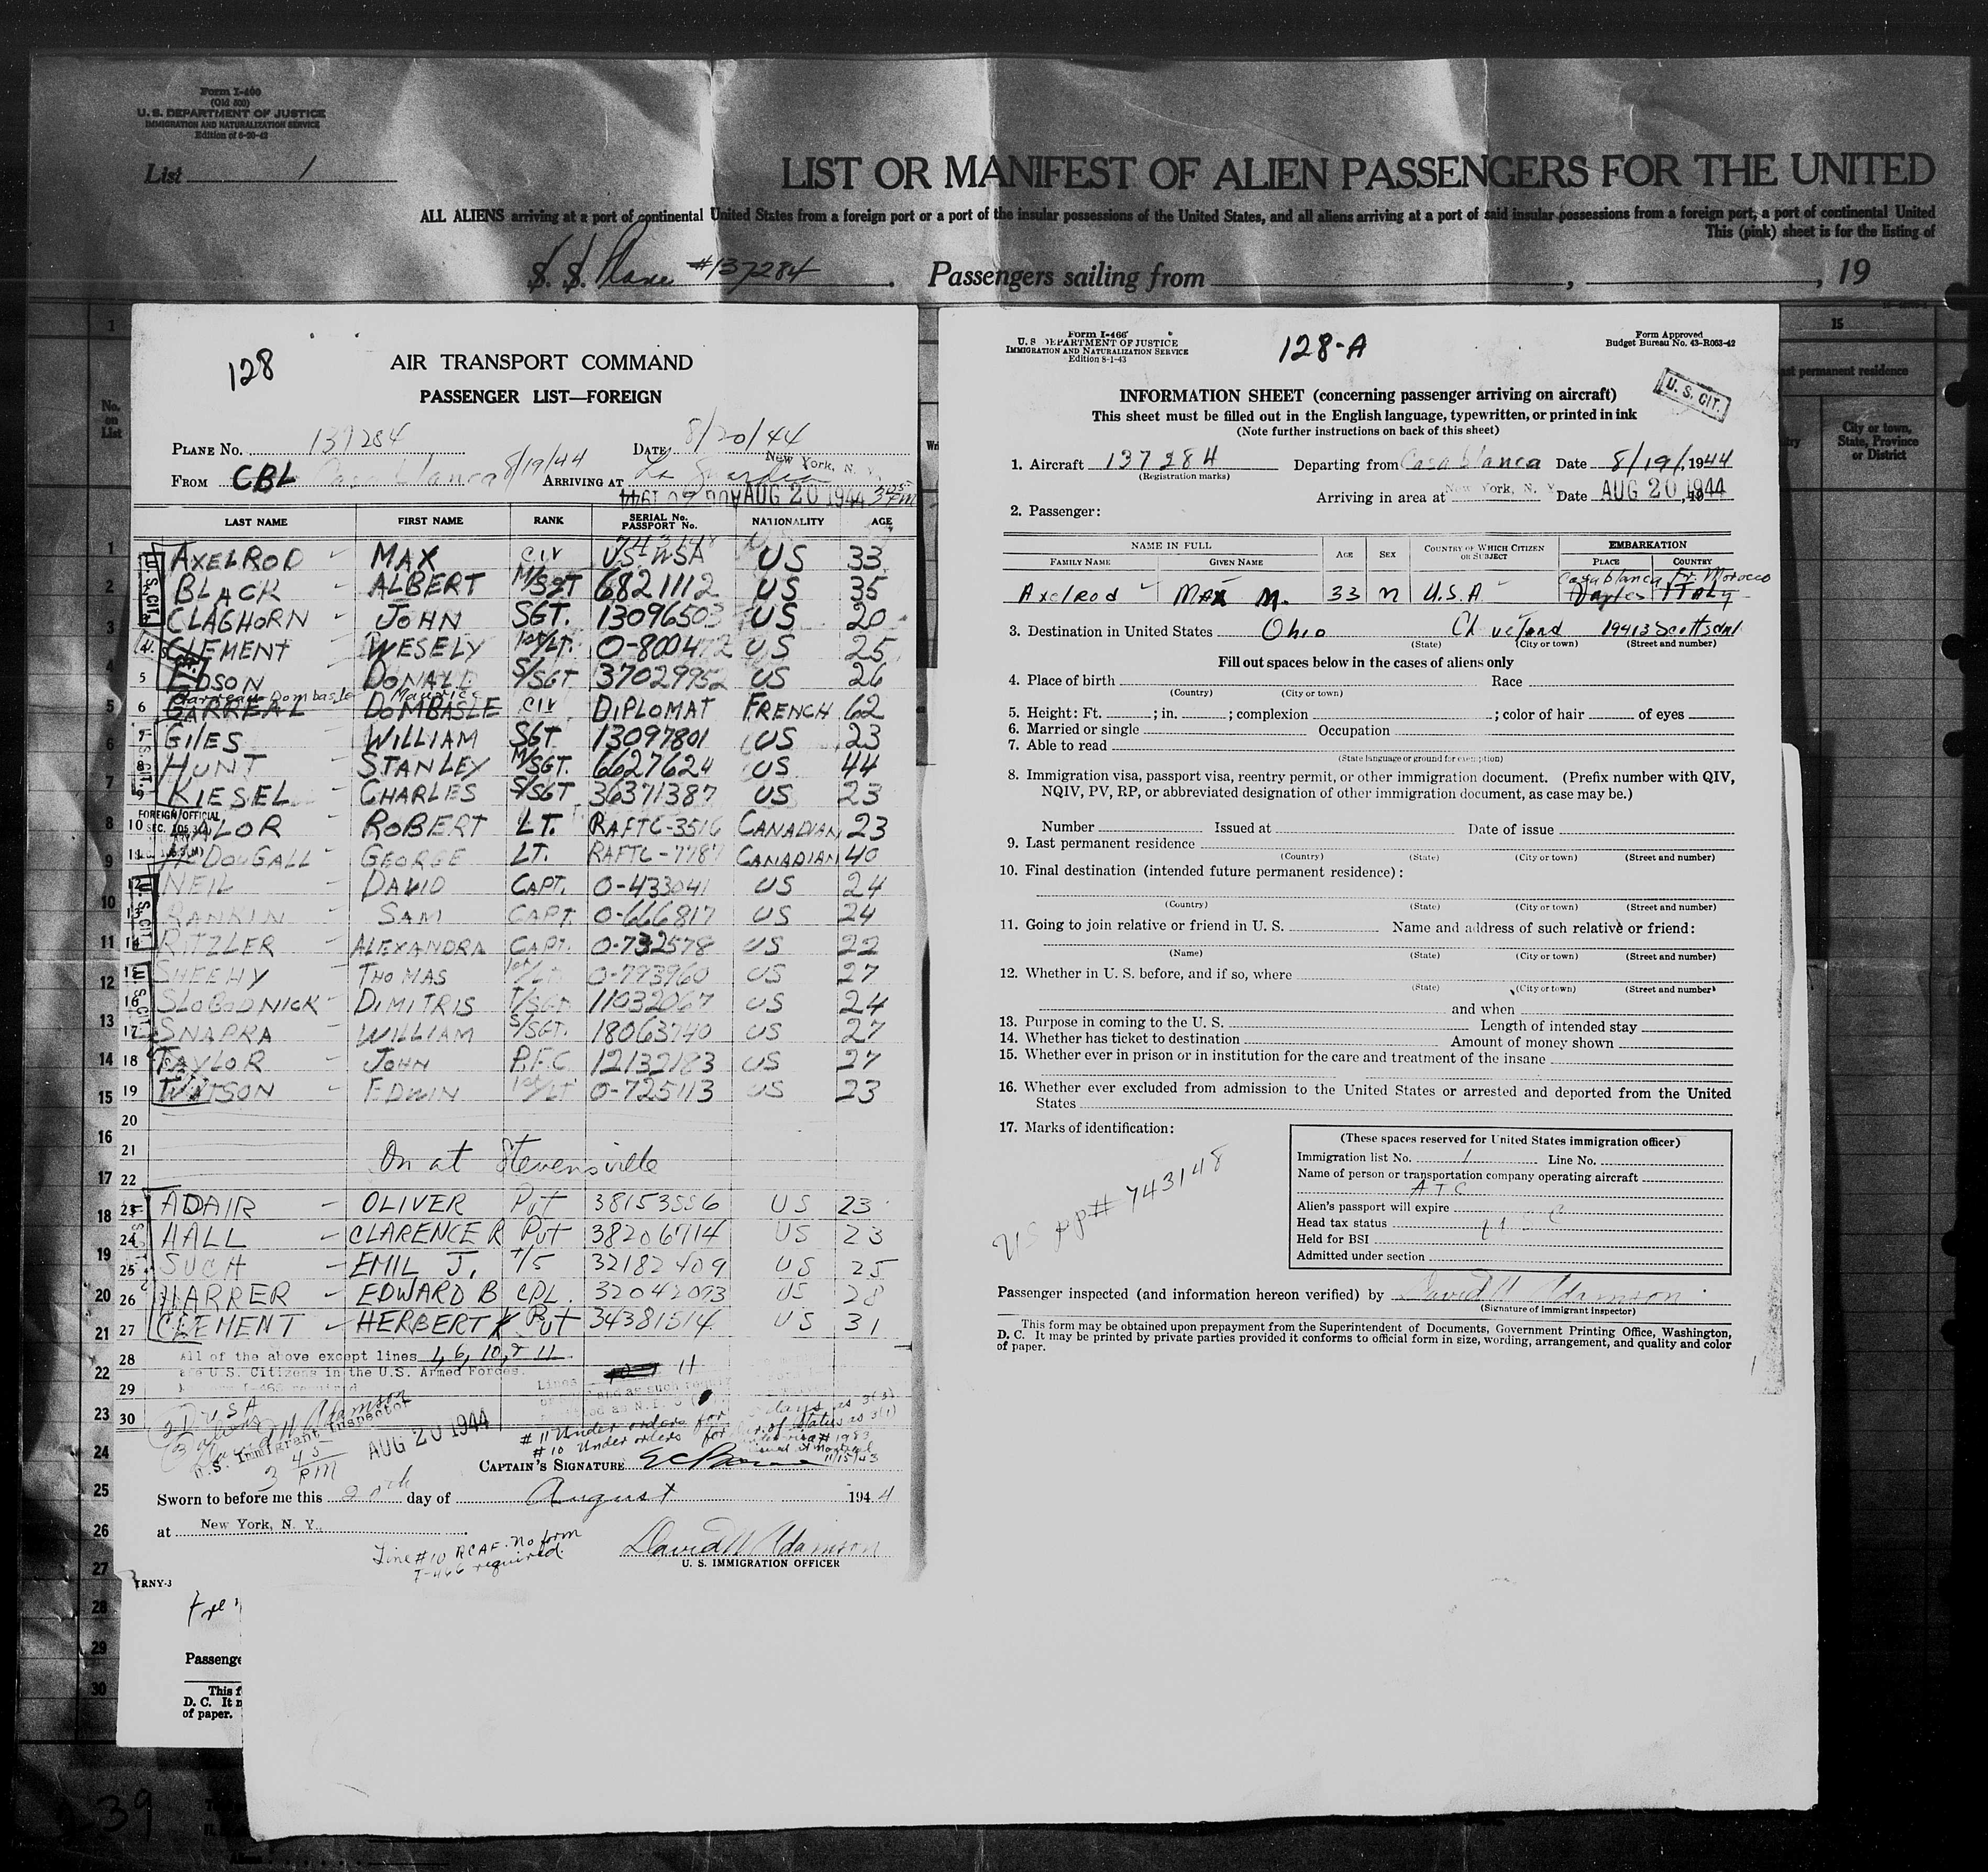 Form I-460
(Old 500)
U. S. DEPARTMENT OF JUSTICE
IMMIGRATION AND NATURALIZATION SERVICE
Edition of 6-20-42
List 1
LIST OR MANIFEST OF ALIEN PASSENGERS FOR THE UNITED
ALL ALIENS arriving at a port of continental United States from a foreign port or a port of the insular possessions of the United States, and all aliens arriving at a port of said insular possessions from a foreign port, a port of continental United
This (pink) sheet is for the listing of
S. S. Plane #137284. Passengers sailing from , , 19
15
No. on List
permanent residence
City or town, State, Province or District
128
AIR TRANSPORT COMMAND
PASSENGER LIST—FOREIGN
PLANE No. 137284 DATE 8/20/44
FROM CBL Casablanca 8/19/44 ARRIVING AT La Guardia New York, N. Y.
AUG 20 1944
LAST NAME FIRST NAME RANK SERIAL No. PASSPORT No. NATIONALITY AGE
1 AXELROD - MAX CIV US. WSA US 33
2 BLACK - ALBERT M/SGT 6821112 US 35
3 CLAGHORN - JOHN SGT. 13096503 US 20
4 CLEMENT WESELY 1st/LT. 0-800472 US 25
5 EDSON DONALD S/SGT 37029952 US 26
Garreau-Dombasle Maurice
6 GARREAL DOMBASLE CIV DIPLOMAT FRENCH 62
7 GILES - WILLIAM SGT 13097801 US 23
8 HUNT - STANLEY M/SGT. 6627624 US 44
9 KIESEL - CHARLES S/SGT 36371387 US 23
10 LALOR - ROBERT LT. RAFTC-3516 CANADIAN 23
11 McDOUGALL - GEORGE LT. RAFTC-7787 CANADIAN 40
12 NEIL - DAVID CAPT. 0-433041 US 24
13 RANKIN - SAM CAPT. 0-666817 US 24
14 RITZLER - ALEXANDRA CAPT. 0-732578 US 22
15 SHEEHY - THOMAS 1st/LT 0-793960 US 27
16 SLOBODNICK - DIMITRIS T/SGT 11032067 US 24
17 SNAPRA - WILLIAM S/SGT. 18063740 US 27
18 TAYLOR - JOHN P.F.C 12132183 US 27
19 WATSON - EDWIN 1st/LT 0-725113 US 23
20
21 On at Stevensville
22
23 ADAIR - OLIVER Pvt 38153556 US 23
24 HALL - CLARENCE R Pvt 38206714 US 23
25 SUCH - EMIL J. T/5 32182409 US 25
26 HARRER - EDWARD B CPL. 32042093 US 28
27 CLEMENT - HERBERT Pvt 34381514 US 31
28 All of the above except lines 1, 6, 10, & 11
are U.S. Citizens in the U.S. Armed Forces.
29
30
U.S. Immigrant Inspector
AUG 20 1944
3 45 PM
# 11 Under orders for days as 3(3)
# 10 Under orders for dur. of status as 3(1)
11/15/43
CAPTAIN'S SIGNATURE
Sworn to before me this 20th day of August 1944
at New York, N. Y.
Line #10 RCAF. No form
I-466 required.
David H Adamson
U. S. IMMIGRATION OFFICER
TRNY-3
Passenge
This f
D. C. It m
of paper.
239
Form I-466
U. S. DEPARTMENT OF JUSTICE
IMMIGRATION AND NATURALIZATION SERVICE
Edition 8-1-43
128-A
Form Approved
Budget Bureau No. 43-R063-42
U. S. CIT.
INFORMATION SHEET (concerning passenger arriving on aircraft)
This sheet must be filled out in the English language, typewritten, or printed in ink
(Note further instructions on back of this sheet)
1. Aircraft 137284 Departing from Casablanca Date 8/19/, 1944
(Registration marks)
Arriving in area at New York, N. Y. Date AUG 20 1944
2. Passenger:
NAME IN FULL AGE SEX COUNTRY OF WHICH CITIZEN OR SUBJECT EMBARKATION
FAMILY NAME GIVEN NAME PLACE COUNTRY
Casablanca Fr. Morocco
Axelrod Max M. 33 M U.S.A Naples ITALY
3. Destination in United States Ohio Cleveland 19413 Scottsdal
(State) (City or town) (Street and number)
Fill out spaces below in the cases of aliens only
4. Place of birth Race
(Country) (City or town)
5. Height: Ft. ; in. ; complexion ; color of hair of eyes
6. Married or single Occupation
7. Able to read
(State language or ground for exemption)
8. Immigration visa, passport visa, reentry permit, or other immigration document. (Prefix number with QIV,
NQIV, PV, RP, or abbreviated designation of other immigration document, as case may be.)
Number Issued at Date of issue
9. Last permanent residence
(Country) (State) (City or town) (Street and number)
10. Final destination (intended future permanent residence):
(Country) (State) (City or town) (Street and number)
11. Going to join relative or friend in U. S. Name and address of such relative or friend:
(Name) (State) (City or town) (Street and number)
12. Whether in U. S. before, and if so, where
(State) (City or town) (Street and number)
and when
13. Purpose in coming to the U. S. Length of intended stay
14. Whether has ticket to destination Amount of money shown
15. Whether ever in prison or in institution for the care and treatment of the insane
16. Whether ever excluded from admission to the United States or arrested and deported from the United
States
17. Marks of identification:
US pp# 743148
(These spaces reserved for United States immigration officer)
Immigration list No. 1 Line No.
Name of person or transportation company operating aircraft
A T C
Alien's passport will expire
Head tax status U S C
Held for BSI
Admitted under section
Passenger inspected (and information hereon verified) by David H Adamson
(Signature of immigrant inspector)
This form may be obtained upon prepayment from the Superintendent of Documents, Government Printing Office, Washington,
D. C. It may be printed by private parties provided it conforms to official form in size, wording, arrangement, and quality and color
of paper.